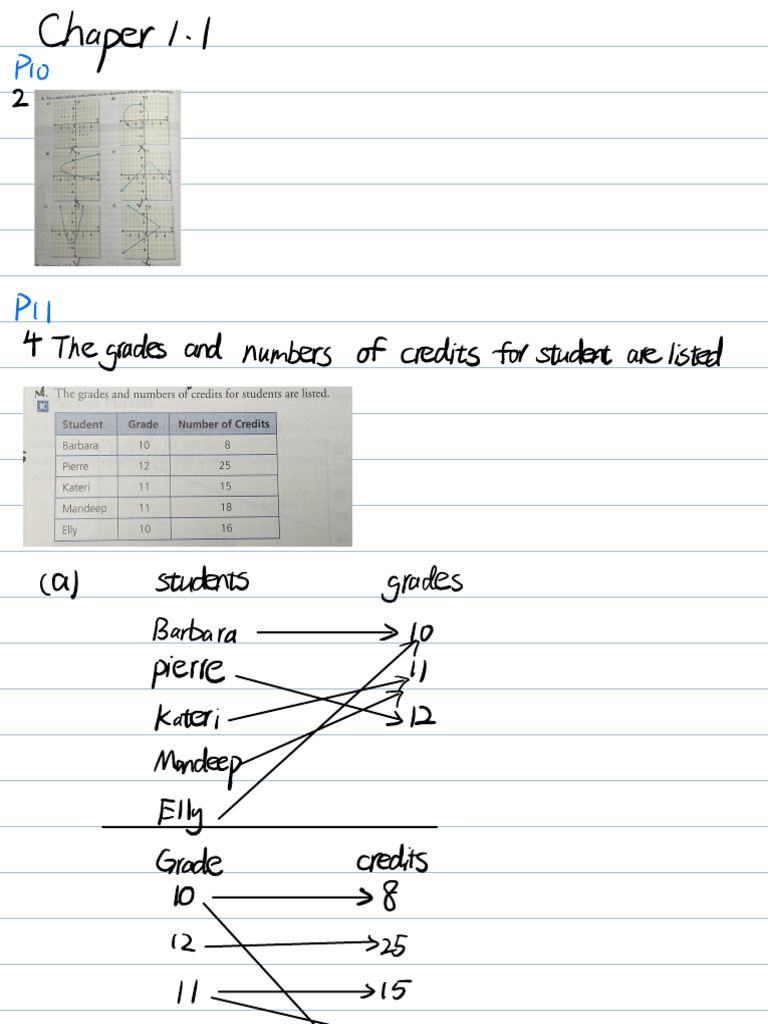 Chaper 1.1
P10
2
P11
4 The grades and numbers of credits for student are listed
4. The grades and numbers of credits for students are listed.
K
Student Grade Number of Credits
Barbara 10 8
Pierre 12 25
Kateri 11 15
Mandeep 11 18
Elly 10 16
(a) students grades
Barbara 10
pierre 11
Kateri 12
Mandeep
Elly
Grade credits
10 8
12 25
11 15